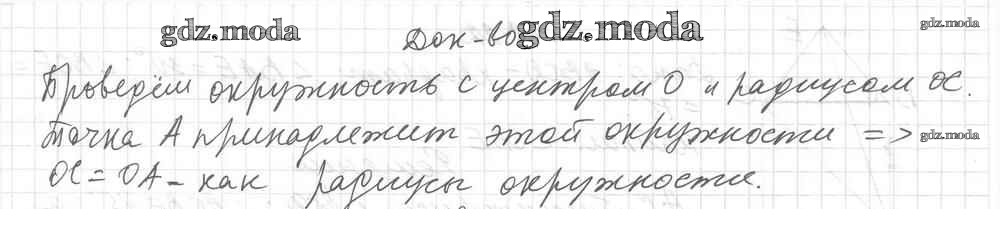 gdz.moda gdz.moda gdz.moda
Док-во
Проведём окружность с центром О и радиусом ОС.
Точка А принадлежит этой окружности => gdz.moda
ОС = ОА - как радиусы окружности.